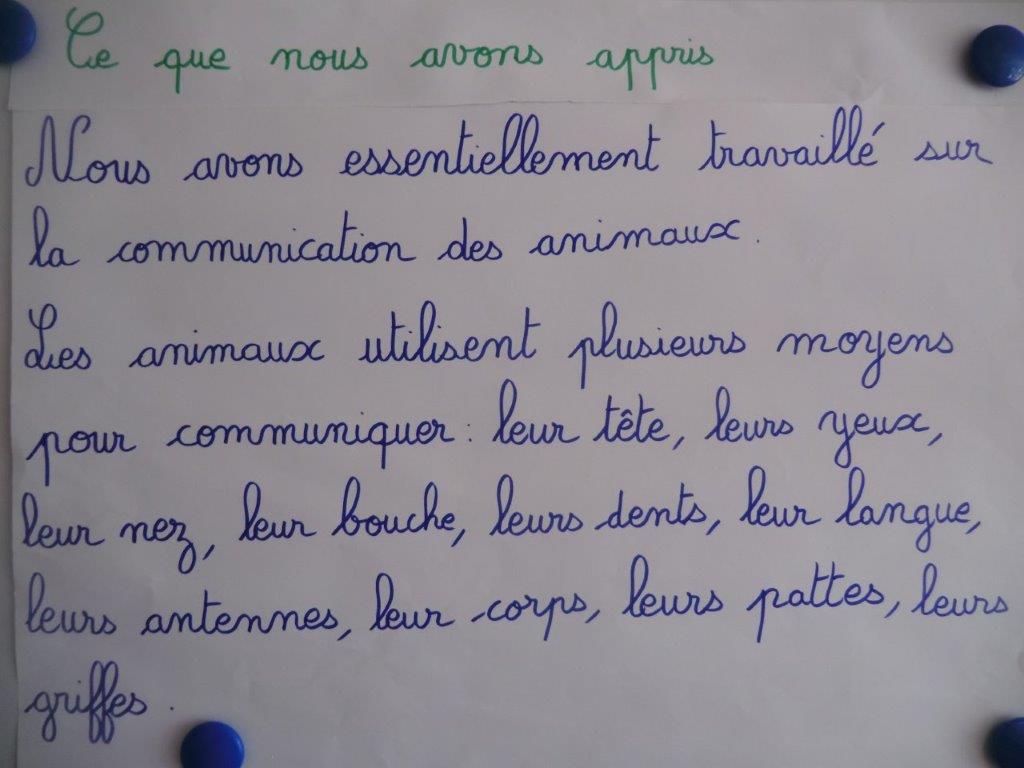 Ce que nous avons appris
Nous avons essentiellement travaillé sur
la communication des animaux.
Les animaux utilisent plusieurs moyens
pour communiquer : leur tête, leurs yeux,
leur nez, leur bouche, leurs dents, leur langue,
leurs antennes, leur corps, leurs pattes, leurs
griffes.